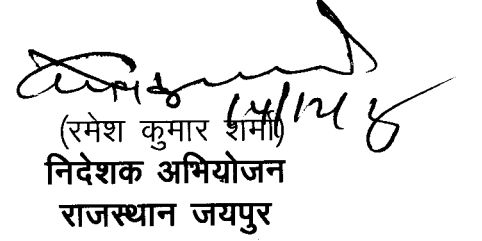 (रमेश कुमार शर्मा)
निदेशक अभियोजन
राजस्थान जयपुर